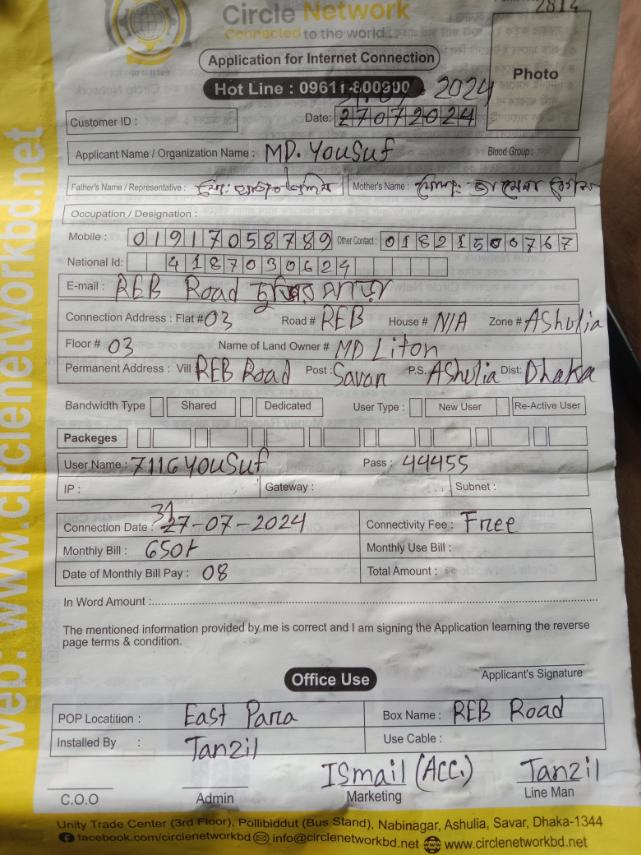 2814
Circle Network
Connected to the world
Application for Internet Connection
Photo
Hot Line : 09611-800900
2024
Customer ID :
Date: 27072024
Applicant Name / Organization Name : MD. YouSuf
Blood Group :
Father's Name / Representative : মোঃ Mother's Name : মোসাঃ
Occupation / Designation :
Mobile : 01917058789 Other Contact : 01821500767
National Id: 4187030624
E-mail : REB Road
Connection Address : Flat # 03 Road # REB House # N/A Zone # AShulia
Floor # 03 Name of Land Owner # MD Liton
Permanent Address : Vill REB Road Post : Savan P.S. AShulia Dist: Dhaka
Bandwidth Type Shared Dedicated User Type : New User Re-Active User
Packeges
User Name : 7116YouSuf Pass : 44455
IP : Gateway : Subnet :
31
Connection Date : 27-07-2024 Connectivity Fee : Free
Monthly Bill : 650/- Monthly Use Bill :
Date of Monthly Bill Pay : 08 Total Amount :
In Word Amount :
The mentioned information provided by me is correct and I am signing the Application learning the reverse
page terms & condition.
Applicant's Signature
Office Use
POP Locatition : East Para Box Name : REB Road
Installed By : Tanzil Use Cable :
ISmail (Acc.) Tanzil
C.O.O Admin Marketing Line Man
Unity Trade Center (3rd Floor), Pollibiddut (Bus Stand), Nabinagar, Ashulia, Savar, Dhaka-1344
facebook.com/circlenetworkbd info@circlenetworkbd.net www.circlenetworkbd.net
web: www.circlenetworkbd.net